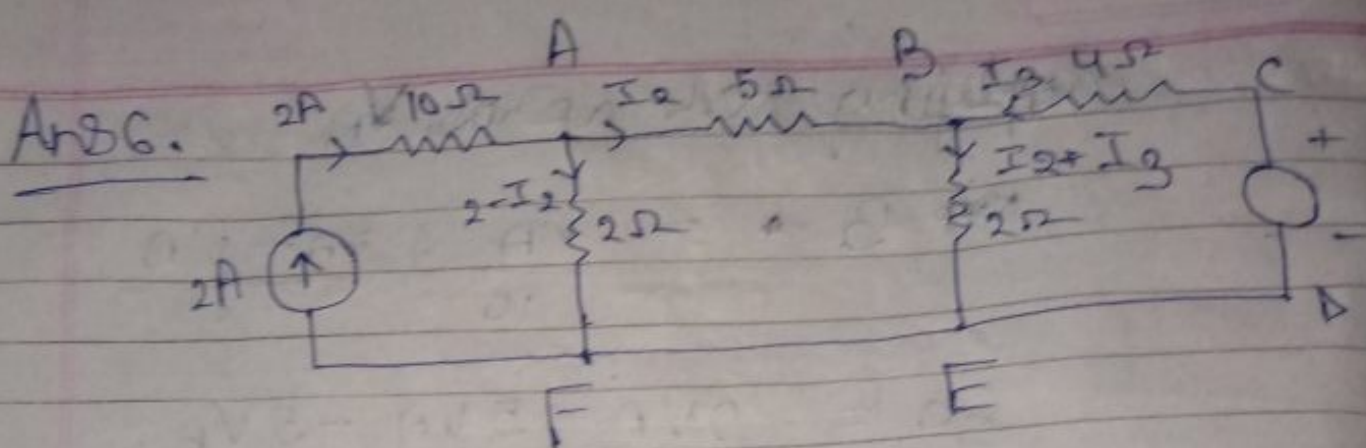 A B
Ans6. 2A 10Ω I2 5Ω I3 4Ω C
2-I2 2Ω I2+I3 2Ω +
2A -
D
F E